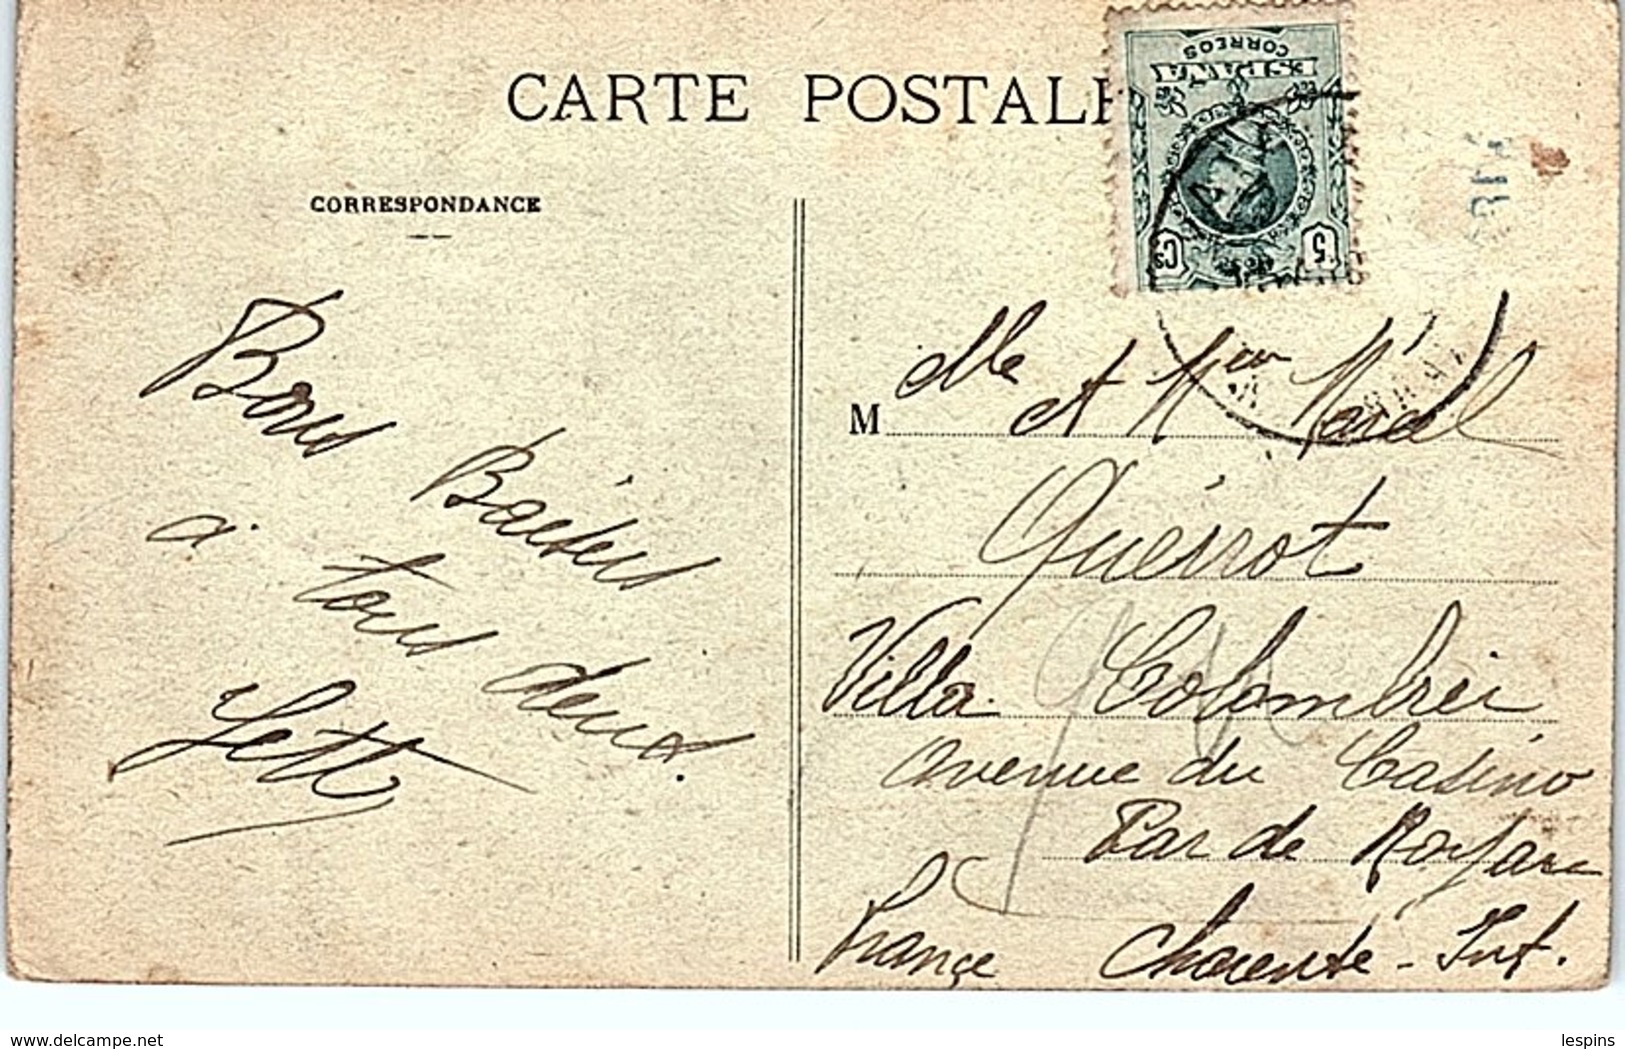 CARTE POSTALE
CORRESPONDANCE
ESPAÑA
CORREOS
5 Cs
Bons Baisers
à tous deux.
Jett
Mlle
M et Mr Marcel
Querrot
Villa Colombier
Avenue du Casino
Par de Royan
France Charente-Inf.
www.delcampe.net
lespins